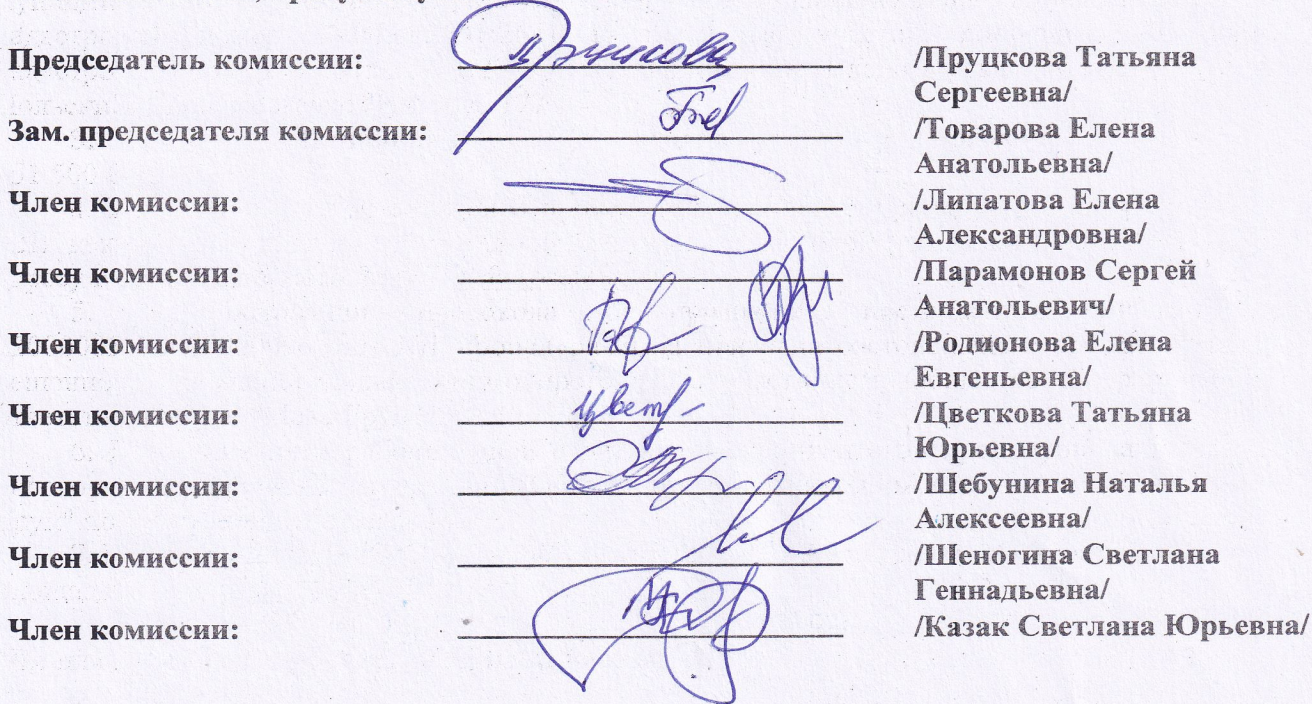 Председатель комиссии: Пруцкова /Пруцкова Татьяна
Сергеевна/
Зам. председателя комиссии: /Товарова Елена
Анатольевна/
Член комиссии: /Липатова Елена
Александровна/
Член комиссии: /Парамонов Сергей
Анатольевич/
Член комиссии: /Родионова Елена
Евгеньевна/
Член комиссии: Цвет /Цветкова Татьяна
Юрьевна/
Член комиссии: /Шебунина Наталья
Алексеевна/
Член комиссии: /Шеногина Светлана
Геннадьевна/
Член комиссии: /Казак Светлана Юрьевна/